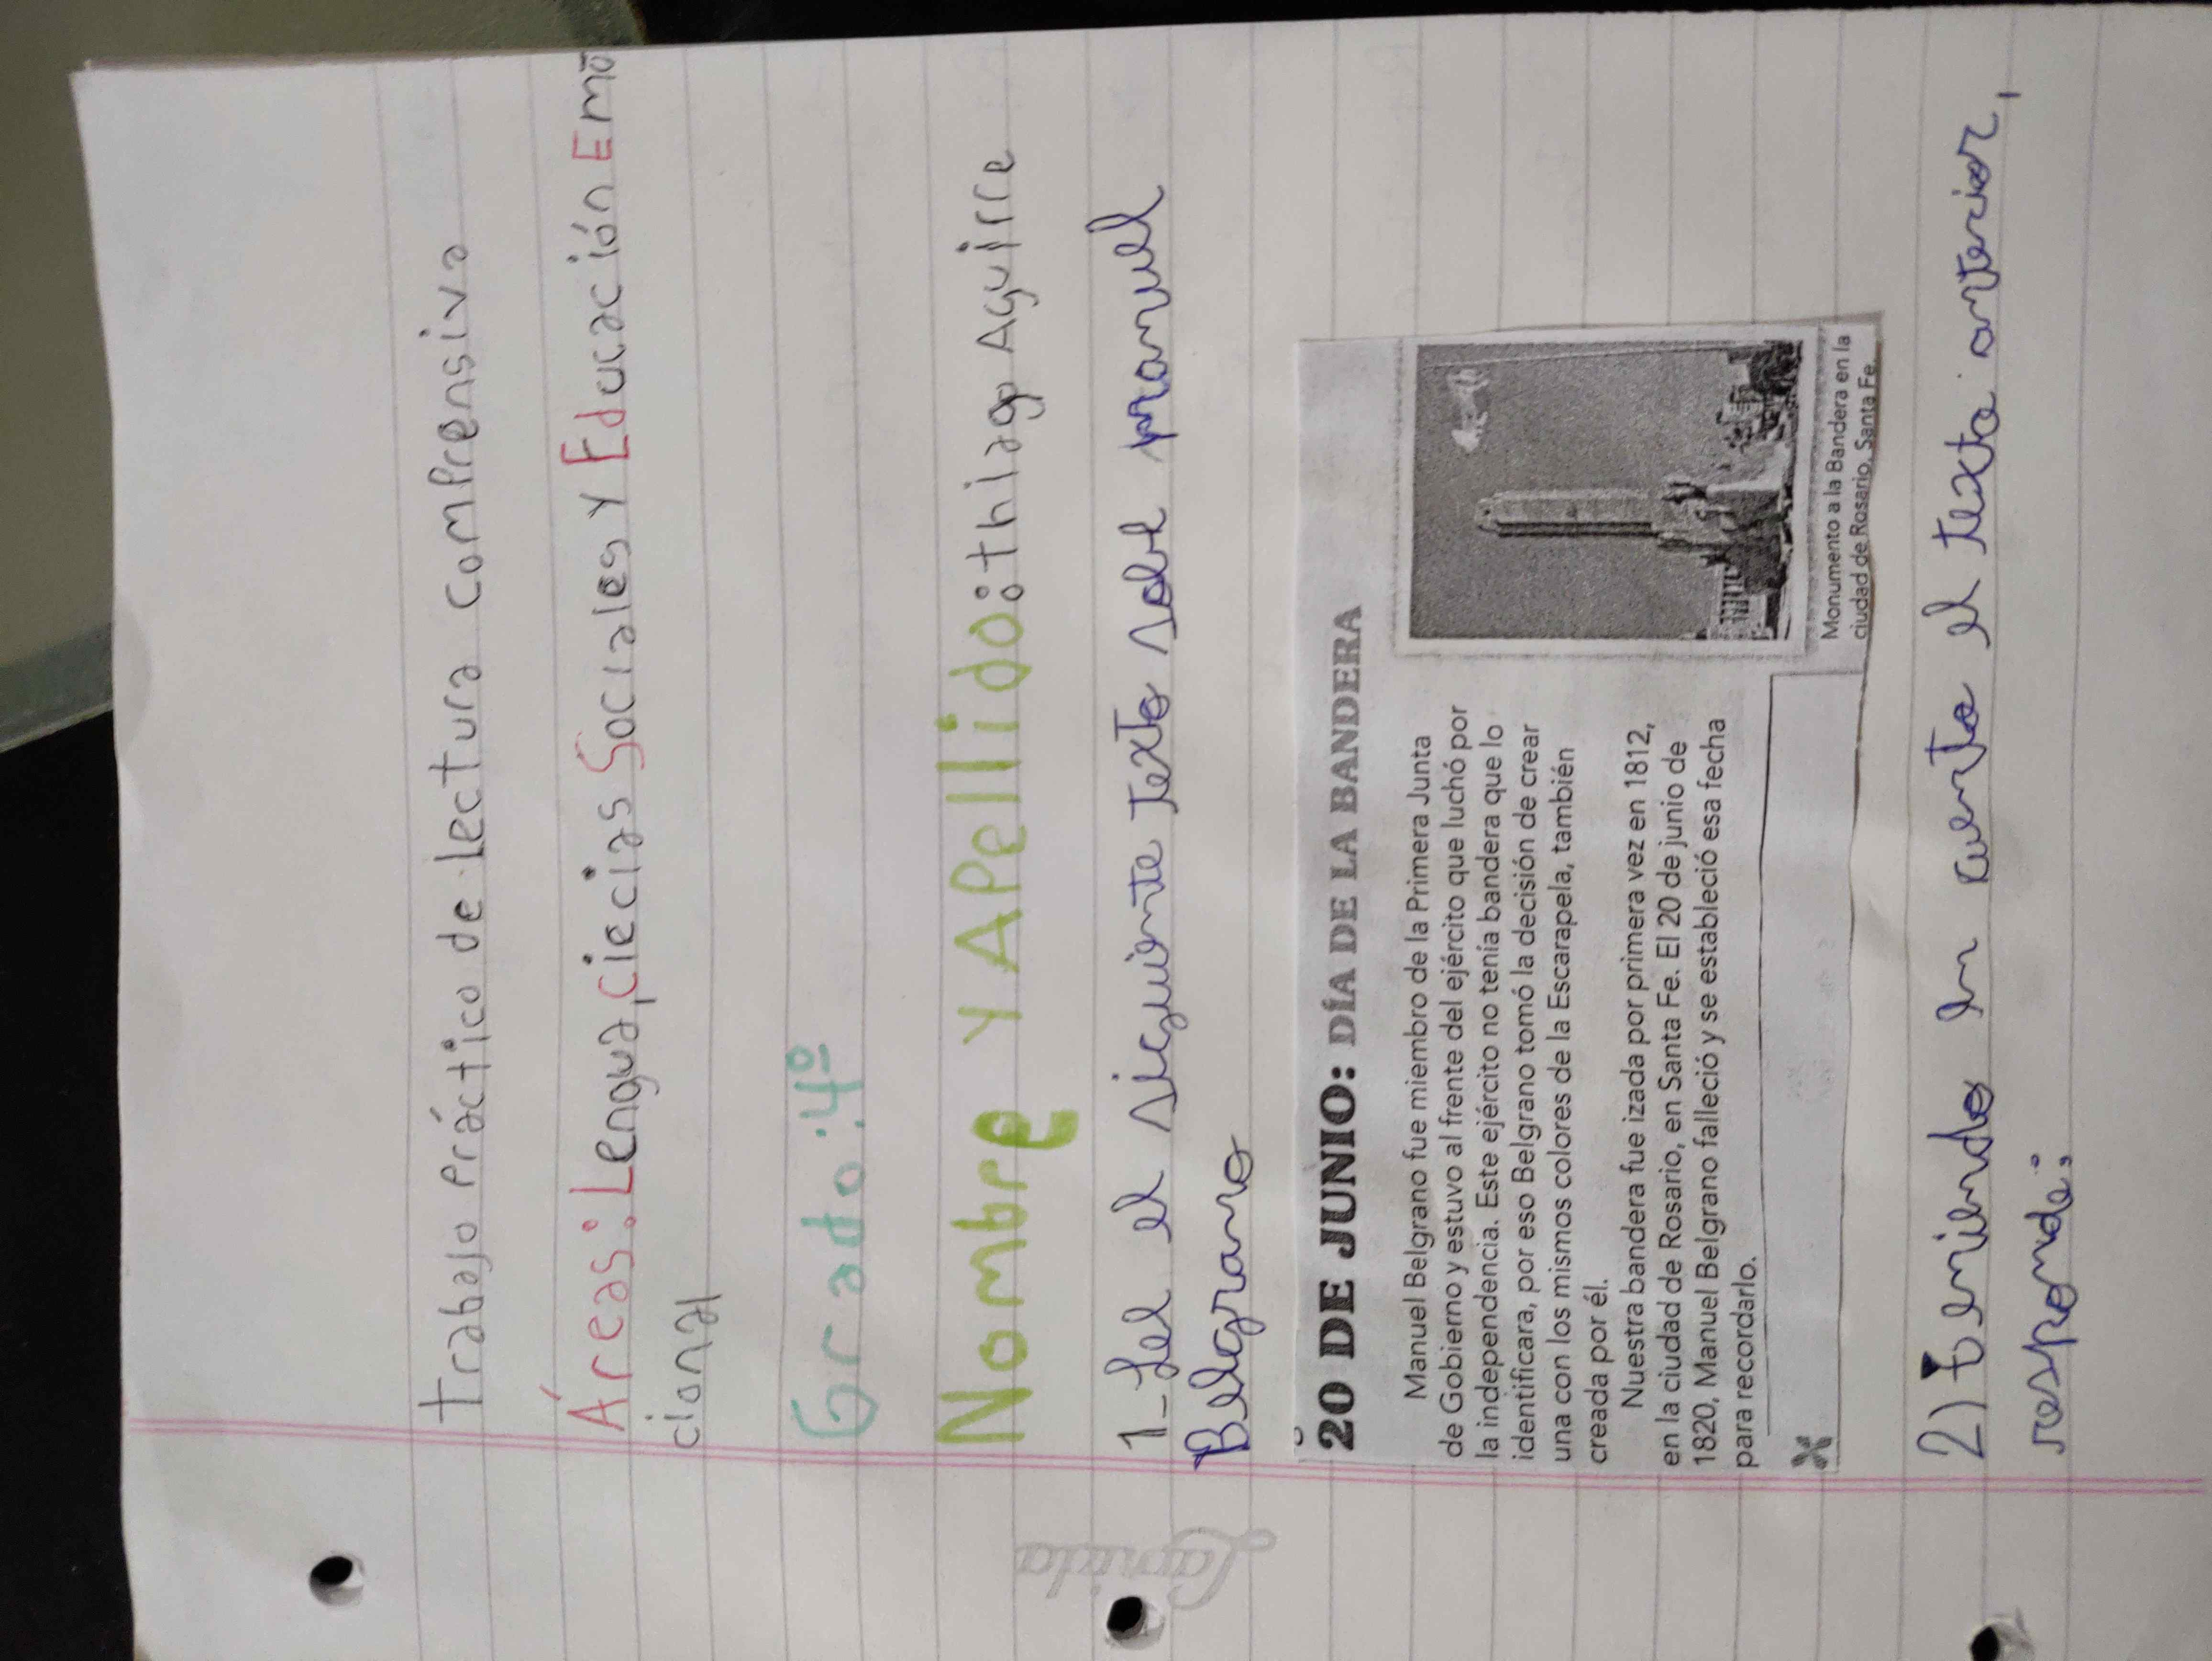 Trabajo Práctico de Lectura comprensiva
Áreas: Lengua, ciecias Sociales y Educación Emo
cional
Grado: 4º
Nombre y Apellido: thiago Aguirre
1_ Leé el siguiente Texto sobre manuel
Belgrano
20 DE JUNIO: DÍA DE LA BANDERA
Manuel Belgrano fue miembro de la Primera Junta
de Gobierno y estuvo al frente del ejército que luchó por
la independencia. Este ejército no tenía bandera que lo
identificara, por eso Belgrano tomó la decisión de crear
una con los mismos colores de la Escarapela, también
creada por él.
Nuestra bandera fue izada por primera vez en 1812,
en la ciudad de Rosario, en Santa Fe. El 20 de junio de
1820, Manuel Belgrano falleció y se estableció esa fecha
para recordarlo.
Monumento a la Bandera en la
ciudad de Rosario, Santa Fe.
2) Teniendo en cuenta el texto anterior,
respondé:
Laprida